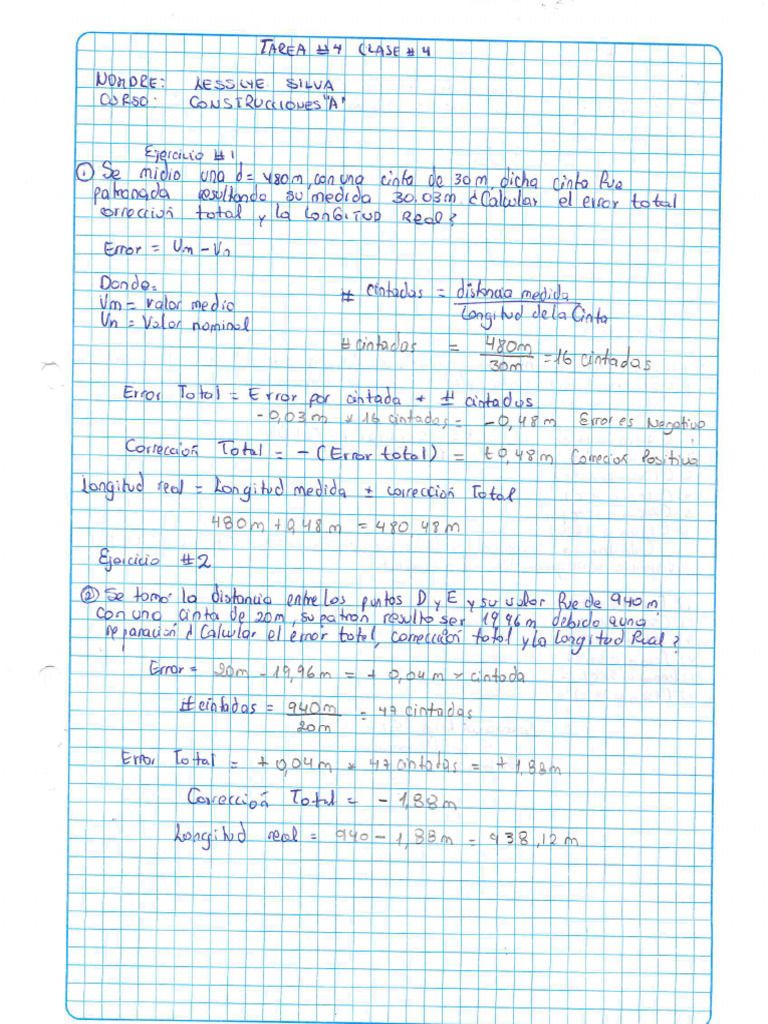 TAREA #4 CLASE #4
NOMBRE: LESSLYE SILVA
CURSO: CONSTRUCCIONES "A"
Ejercicio #1
① Se midio una d= 480m, con una cinta de 30m, dicha cinta fue
patronada resultando su medida 30.03m. ¿Calcular el error total
corrección total y la LONGITUD Real?
Error = Vm - Vn
Donde:
Vm = valor medio
Vn = Valor nominal
# cintadas = distancia medida
Longitud de la Cinta
# cintadas = 480m = 16 cintadas
30m
Error Total = Error por cintada * # cintadas
- 0,03m * 16 cintadas = - 0,48m Error es Negativo
Corrección Total = - (Error total) = + 0,48m Correcion Positiva
Longitud real = Longitud medida ± corrección Total
480m + 0,48m = 480,48m
Ejercicio #2
② Se tomo la distancia entre los puntos D y E y su valor fue de 940m
con una cinta de 20m, su patron resulto ser 19,96m debido a una
reparación ¿ Calcular el error total, corrección total y la longitud Real?
Error = 20m - 19,96m = + 0,04m x cintada
# cintadas = 940m = 47 cintadas
20m
Error Total = + 0,04m * 47 cintadas = + 1,88m
Corrección Total = - 1,88m
Longitud real = 940 - 1,88m = 938,12m